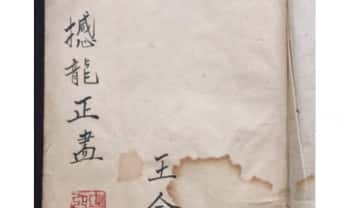 撼龍正畵
王